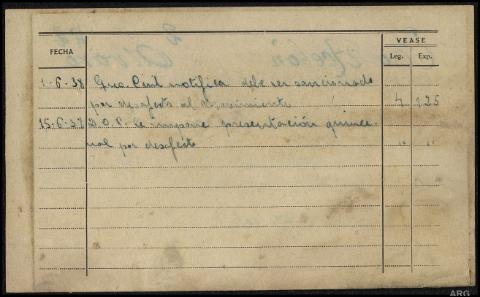 VEASE
FECHA
Leg.
Exp.
1-6-38 Gua. Civil notifica debe ser sancionado
por desafecto al 4 125
15-6-37 D.O.P. le impone presentación quince-
nal por desafecto " "
ARG